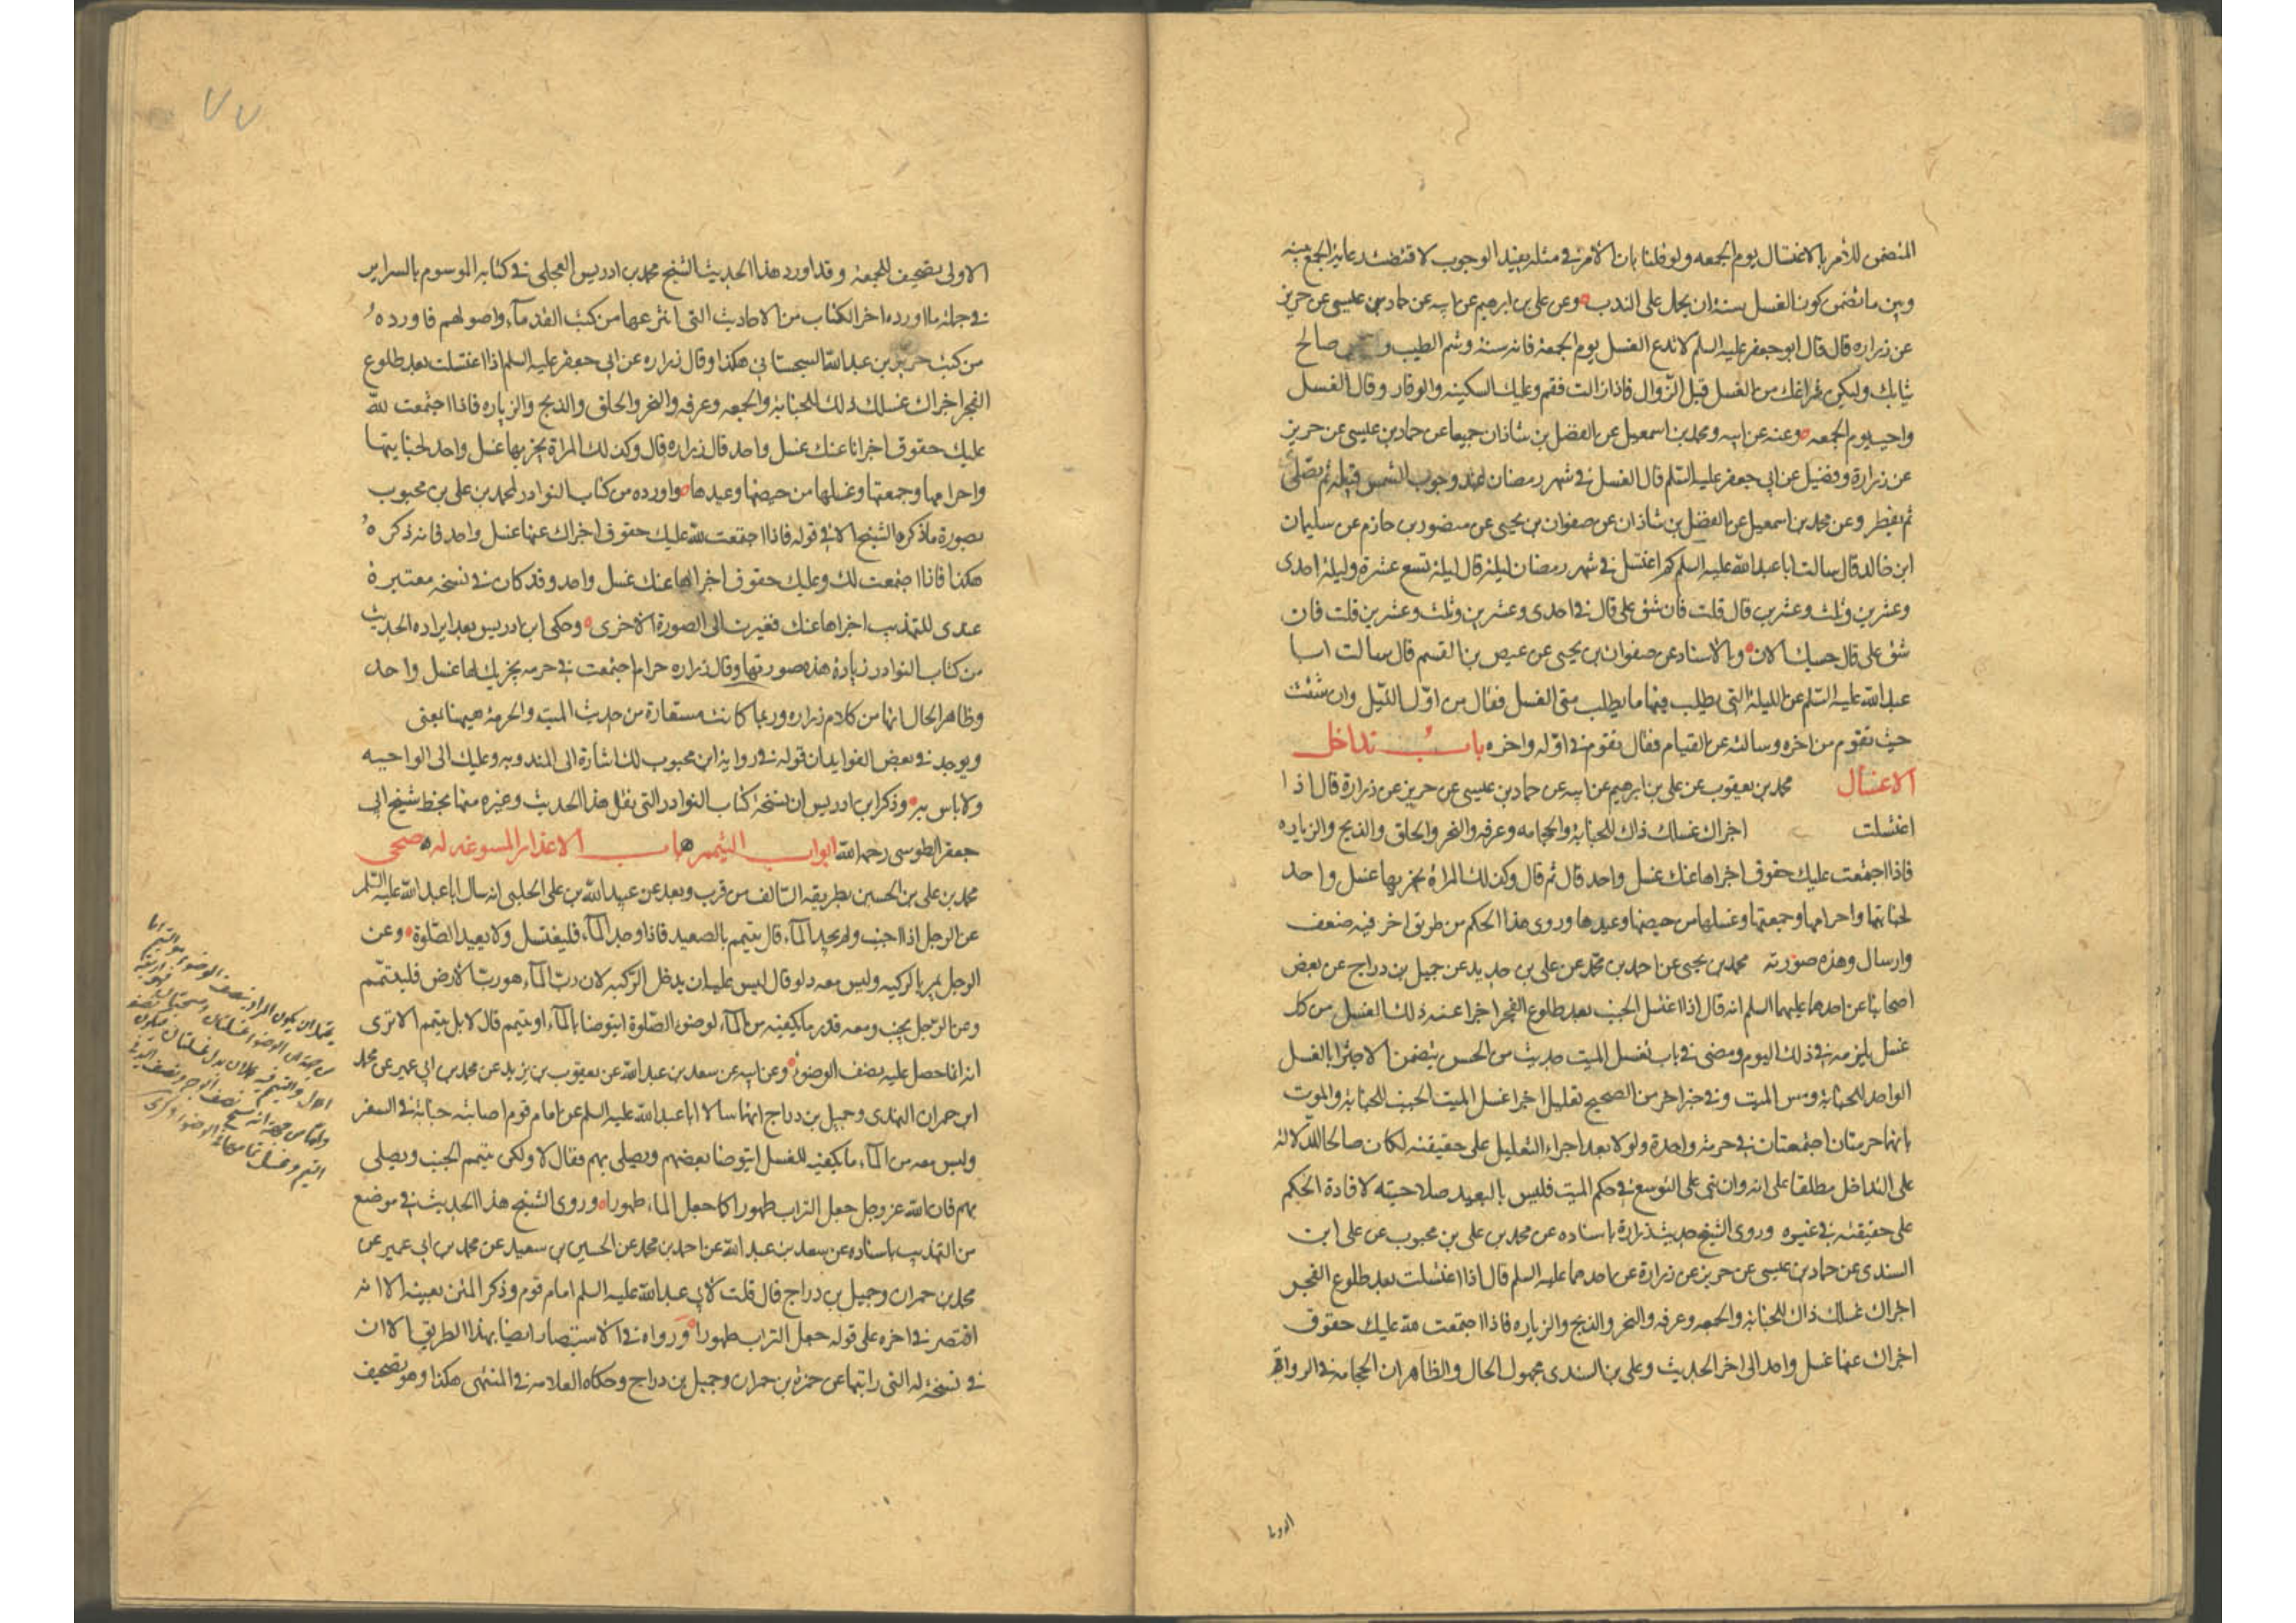 المتضمن للأمر بالاغتسال يوم الجمعه ولو قلنا بان الامر في مثله يفيد الوجوب لاقتضت رعاية الجمع بينه
وبين ما تضمن كون الغسل سنة ان يحمل على الندب وعن على بن ابرهيم عن ابيه عن حماد بن عيسى عن حريز
عن زراره قال قال ابو جعفر عليه السلم لا تدع الغسل يوم الجمعة فانه سنة وشم الطيب و صالح
ثيابك وليكن فراغك من الغسل قبل الزوال فاذا زالت فقم وعليك السكينه والوقار وقال الغسل
واجب يوم الجمعه وعنه عن ابيه ومحمد بن اسمعيل عن الفضل بن شاذان جميعا عن حماد بن عيسى عن حريز
عن زرارة وفضيل عن ابي جعفر عليه السلم قال الغسل في شهر رمضان عند وجوب الشمس قبيله ثم يصلى
ثم يفطر وعن محمد بن اسمعيل عن الفضل بن شاذان عن صفوان بن يحيى عن منصور بن حازم عن سليمان
ابن خالد قال سالت ابا عبد الله عليه السلم كم اغتسل في شهر رمضان ليلة قال ليلة تسع عشرة وليلة احدى
وعشرين وثلث وعشرين قال قلت فان شق على قال في احدى وعشرين وثلث وعشرين قلت فان
شق على قال حسبك الان وبالاسناد عن صفوان بن يحيى عن عيص بن القسم قال سالت ابا
عبد الله عليه السلم عن الليلة التي يطلب فيها ما يطلب متى الغسل فقال من اول الليل وان شئت
حيث تقوم من اخره وسالته عن القيام فقال تقوم في اوله واخره باب تداخل
الاغسال محمد بن يعقوب عن على بن ابرهيم عن ابيه عن حماد بن عيسى عن حريز عن زرارة قال اذا
اغتسلت اجزاك غسلك ذاك للجنابة والحجامه وعرفه والنحر والحلق والذبح والزياره
فاذا اجتمعت عليك حقوق اجزاها عنك غسل واحد قال ثم قال وكذلك المراة يجزيها غسل واحد
لجنابتها واحرامها وجمعتها وغسلها من حيضها وعيدها وروى هذا الحكم من طريق اخر فيه ضعف
وارسال وهذه صورته محمد بن يحيى عن احمد بن محمد عن على بن حديد عن جميل بن دراج عن بعض
اصحابنا عن احدهما عليهما السلم انه قال اذا اغتسل الجنب بعد طلوع الفجر اجزا عنه ذلك الغسل من كل
غسل يلزمه في ذلك اليوم ومضى في باب تغسل الميت حديث من الحسن يتضمن الاجتزا بالغسل
الواحد للجنابة ومس الميت وفي خبر اخر من الصحيح تعليل اجزا غسل الميت الجنب للجنابة والموت
بانهما حرمتان اجتمعتان في حرمة واحدة ولولا بعد اجراء التعليل على حقيقته لكان صالحا للدلالة
على التداخل مطلقا على انه وان نفى على التوسع في حكم الميت فليس بالبعيد صلاحيته لافادة الحكم
على حقيقته في غيره وروى الشيخ حديث زرارة باسناده عن محمد بن على بن محبوب عن على ابن
السندى عن حماد بن عيسى عن حريز عن زرارة عن احدهما عليه السلم قال اذا اغتسلت بعد طلوع الفجر
اجزاك غسلك ذاك للجنابة والجمعه وعرفه والنحر والذبح والزياره فاذا اجتمعت لله عليك حقوق
اجزاك عنها غسل واحد الى اخر الحديث وعلى بن السندى مجهول الحال والظاهر ان الحجامه في الرواية
٧٧
الاولى تصحيف للجمعة وقد اورد هذا الحديث الشيخ محمد بن ادريس العجلى في كتابه الموسوم بالسراير
في جملة ما اورده اخر الكتاب من الاحاديث التي انتزعها من كتب القدمآء واصولهم فاورده
من كتب حريز بن عبد الله السجستاني هكذا وقال زراره عن ابي جعفر عليه السلم اذا اغتسلت بعد طلوع
الفجر اجزاك غسلك ذلك للجنابة والجمعه وعرفه والنحر والحلق والذبح والزياره فاذا اجتمعت لله
عليك حقوق اجزاها عنك غسل واحد قال زراره قال وكذلك المراة يجزيها غسل واحد لجنابتها
واحرامها وجمعتها وغسلها من حيضها وعيدها واورده من كتاب النوادر لمحمد بن على بن محبوب
بصورة ما ذكره الشيخ الا في قوله فاذا اجتمعت لله عليك حقوق اجزاك عنها غسل واحد فانه ذكره
هكذا فاذا اجتمعت لك وعليك حقوق اجزاها عنك غسل واحد وقد كان في نسخه معتبرة
عندى للتهذيب اجزاها عنك فغيرت الى الصورة الاخرى وحكى ابن ادريس بعد ايراده الحديث
من كتاب النوادر زيادة هذه صورتها وقال زراره حرام اجتمعت في حرمه يجزيك لها غسل واحد
وظاهر الحال انها من كلام زراره وربما كانت مستفادة من حديث الميت والحرمة هيهنا بمعنى
ويوجد في بعض الفوايد ان قوله في رواية ابن محبوب لك اشارة الى المندوبه وعليك الى الواجبه
ولا باس به وذكر ابن ادريس ان نسخة كتاب النوادر التي نقل هذا الحديث وغيره منها بخط شيخ ابي
جعفر الطوسى رحمه الله ابواب التيمم باب الاعذار المسوغه له صحى
محمد بن على بن الحسين بطريقه السالف من قرب وبعد عن عبيد الله بن على الحلبى انه سال ابا عبد الله عليه السلم
عن الرجل اذا اجنب ولم يجد المآء قال يتيمم بالصعيد فاذا وجد المآء فليغتسل ولا يعيد الصلوة وعن
الرجل يمر بالركيه وليس معه دلو قال ليس عليه ان يدخل الركيه لان رب المآء هو رب الارض فليتيمم
وعن الرجل يجنب ومعه قدر ما يكفيه من المآء لوضوء الصلوة ايتوضا بالمآء او يتيمم قال لا بل يتيمم الا ترى
انه انما حصل عليه نصف الوضوء وعن ابيه عن سعد بن عبد الله عن يعقوب بن يزيد عن محمد بن ابي عمير عن محمد
ابن حمران النهدى وجميل بن دراج انهما سالا ابا عبد الله عليه السلم عن امام قوم اصابته جنابة في السفر
وليس معه من المآء ما يكفيه للغسل ايتوضا بعضهم ويصلى بهم فقال لا ولكن يتيمم الجنب ويصلى
بهم فان الله عز وجل جعل التراب طهورا كما جعل الماء طهورا وروى الشيخ هذا الحديث في موضع
من التهذيب باسناده عن سعد بن عبد الله عن احمد بن محمد عن الحسين بن سعيد عن محمد بن ابي عمير عن
محمد بن حمران وجميل بن دراج قال قلت لابي عبد الله عليه السلم امام قوم وذكر المتن بعينه الا انه
اقتصر في اخره على قوله جعل التراب طهورا ورواه في الاستبصار ايضا بهذا الطريق الا ان
في نسخة له التي رايتها عن حمزة بن حمران وجميل بن دراج وحكاه العلامه في المنتهى هكذا وهو تصحيف